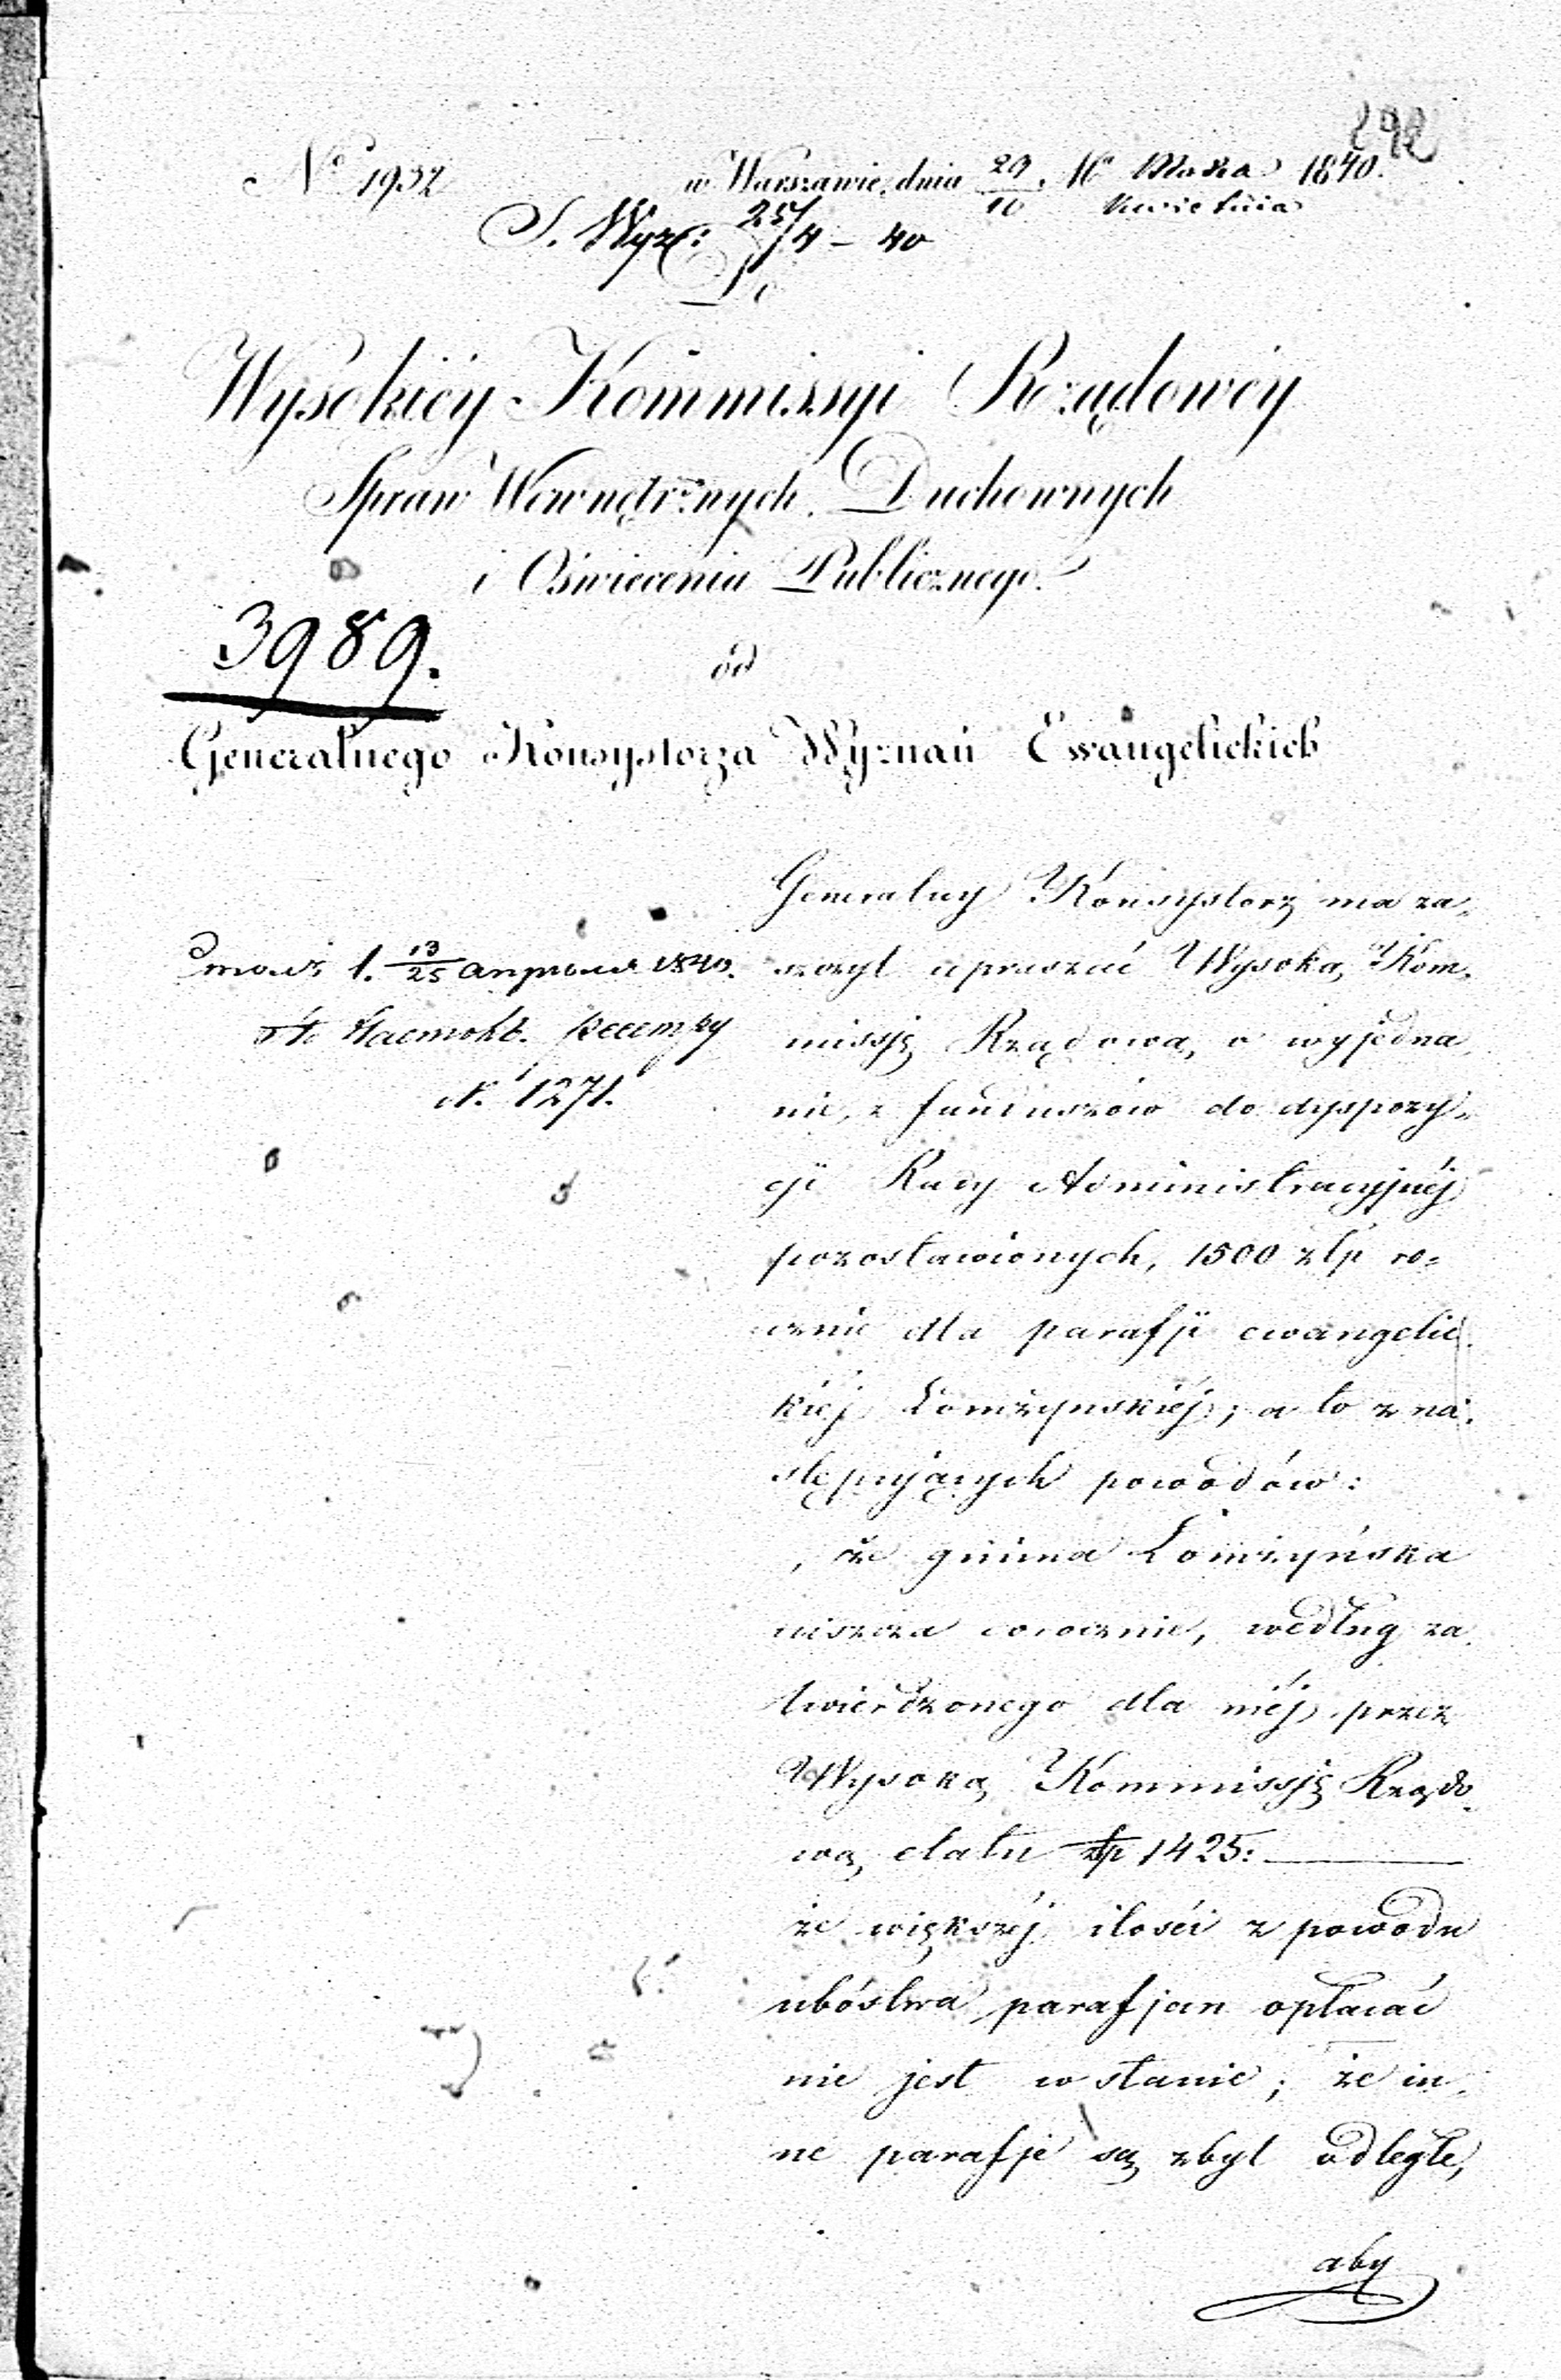 292
No 1937 w Warszawie, dnia 29/10 Marca Kwietnia 1840.
S. Wyz: 25/4 – 40
Do
Wysokiéy Kommissyi Rządowéy
Spraw Wewnętrznych, Duchownych
i Oświecenia Publicznego.
3989.
od
Generalnego Konsystorza Wyznań Ewangelickich
Generalny Konsystorz ma za-
szczyt upraszać Wysoką Kom-
missję Rządową o wyjedna-
nie, z funduszów do dyspozy-
cji Rady Administracyjnéj
pozostawionych, 1500 złp ro-
cznie dla parafji ewangelic-
kiéj Łomżyńskiéj; a to z na-
stępujących powodów:
że gmina Łomżyńska
uiszcza corocznie, według za-
twierdzonego dla niéj przez
Wysoką Kommissję Rządo-
wą etatu złp 1425:
że większéj ilości z powodu
ubóstwa parafjan opłacać
nie jest w stanie; że in-
ne parafje są zbyt odległe,
aby
13/25 апрѣля 1840.
N. 1271.